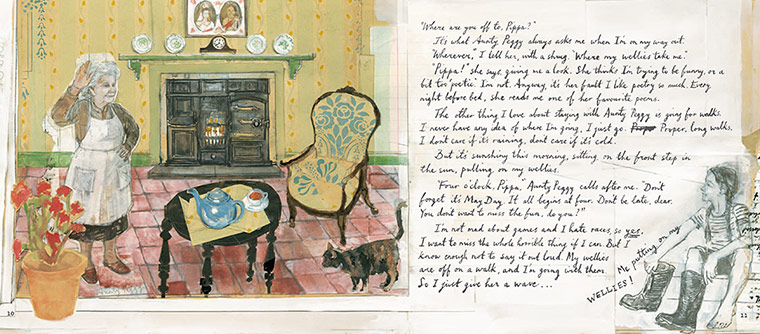 "Where are you off to, Pippa?"
It's what Aunty Peggy always asks me when I'm on my way out.
"Wherever," I tell her, with a shrug. "Where my wellies take me."
"Pippa!" she says, giving me a look. She thinks I'm trying to be funny, or a
bit too 'poetic'. I'm not. Anyway, it's her fault I like poetry so much. Every
night before bed, she reads me one of her favourite poems.
The other thing I love about staying with Aunty Peggy is going for walks.
I never have any idea of where I'm going, I just go. Proper, long walks.
I don't care if it's raining, don't care if it's cold.
But it's sunshiny this morning, sitting on the front step in
the sun, pulling on my wellies.
"Four o'clock, Pippa," Aunty Peggy calls after me. "Don't
forget it's May Day. It all begins at four. Don't be late, dear.
You don't want to miss the fun, do you?"
I'm not mad about games and I hate races, so yes,
I want to miss the whole horrible thing if I can. But I
know enough not to say it out loud. My wellies
are off on a walk, and I'm going with them.
So I just give her a wave...
Me putting on my
WELLIES!
10
11